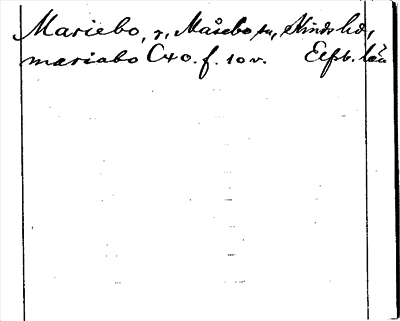 Mariebo, r, Måsebo sn, Kinds hd,
mariabo C40. f. 10 v. Elfsb. län